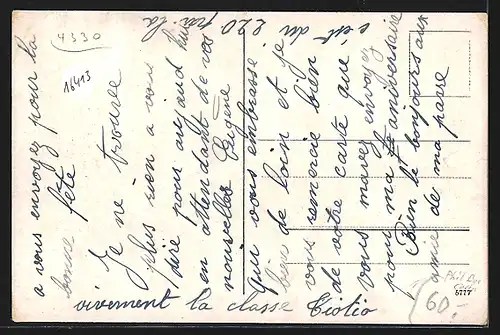 4330
16413
c'est du 220 par la
a vous envoyez pour la
bonne fête
Je ne trouve
plus rien a vous
dire pour aujourd'hui
en attendant de vos
nouvelles Eugène
qui vous embrasse
bien de loin et je
vous remercie bien
de votre carte que
vous mavez envoyez
pour ma fête aniversaire
Bien le bonjours aux
amie de ma parre
vivement la classe Tiotio
60.-
6777